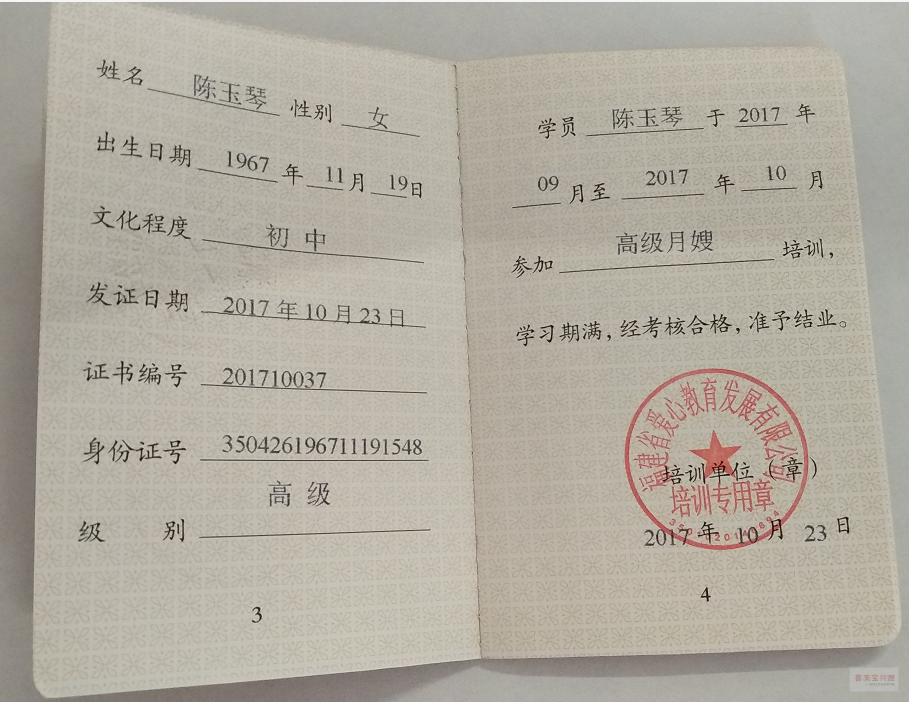 姓名 陈玉琴 性别 女
出生日期 1967 年 11 月 19 日
文化程度 初中
发证日期 2017 年 10 月 23 日
证书编号 201710037
身份证号 350426196711191548
级 别 高级
3
学员 陈玉琴 于 2017 年
09 月至 2017 年 10 月
参加 高级月嫂 培训，
学习期满，经考核合格，准予结业。
福建省爱心教育发展有限公司
培训单位（章）
培训专用章
2017 年 10 月 23 日
4